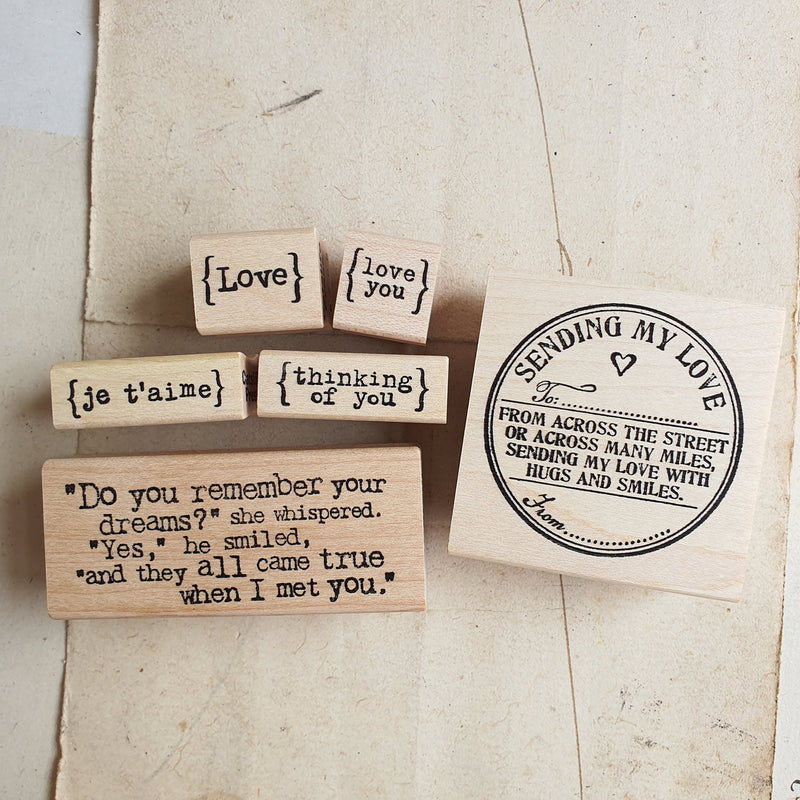 {Love}
{love
you}
{je t'aime}
{thinking
of you}
"Do you remember your
dreams?" she whispered.
"Yes," he smiled,
"and they all came true
when I met you."
SENDING MY LOVE
To:
FROM ACROSS THE STREET
OR ACROSS MANY MILES,
SENDING MY LOVE WITH
HUGS AND SMILES.
From